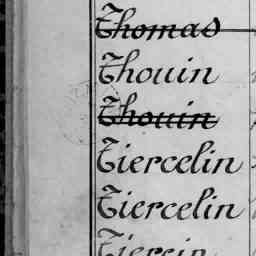 Thomas
Thouin
Thouin
Tiercelin
Tiercelin
Tiercin